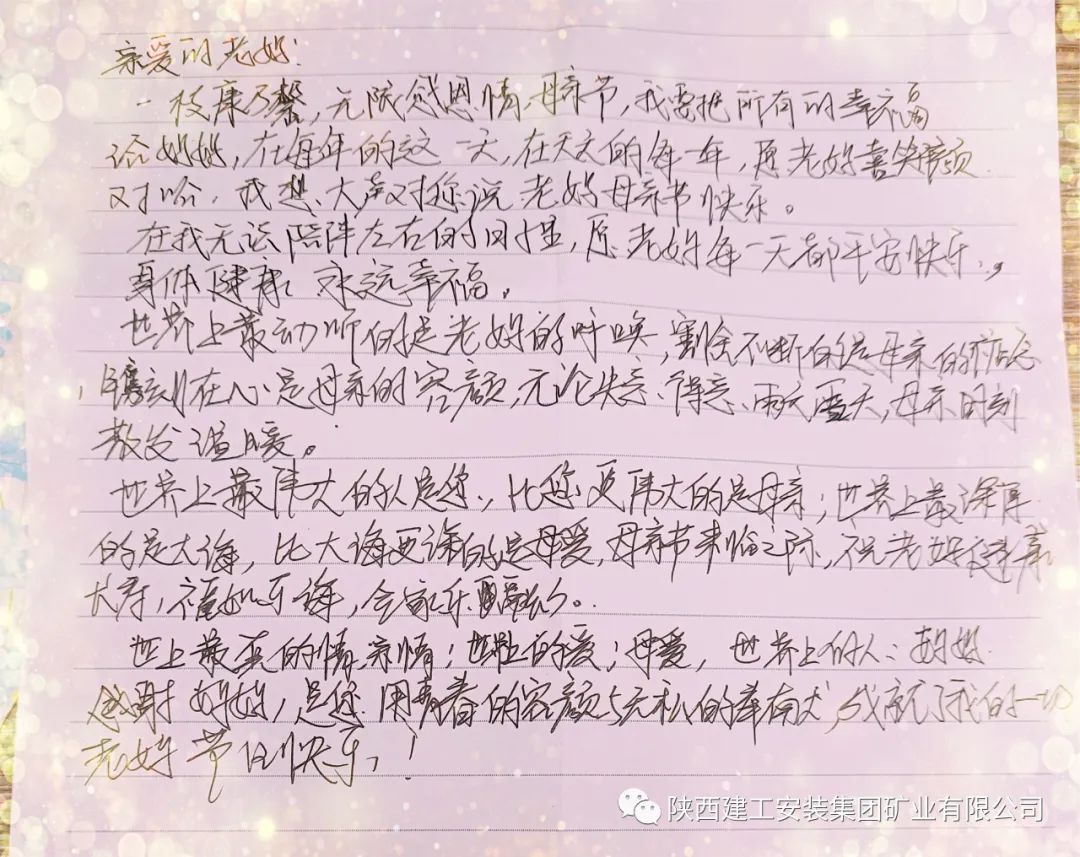 亲爱的老妈:
一枝康乃馨,无限感恩情,母亲节,我要把所有的幸福
给妈妈,在每年的这一天,在天天的每一年,愿老妈喜笑颜
对哈,我想大声对您说老妈母亲节快乐。
在我无法陪伴左右的日子里,愿老妈每一天都平安快乐,
身体健康,永远幸福。
世界上最动听的是老妈的呼唤,割舍不断的是母亲的惦念
,镌刻在心是母亲的容颜,无论失意、得意、雨天雪天,母亲时刻
散发温暖。
世界上最伟大的人是您,比您更伟大的是母亲;世界上最深厚
的是大海,比大海更深的是母爱,母亲节来临之际,祝老妈健康
长寿,福如东海,全家乐
世上最真的情亲情;世上的爱;母爱,世界上的人:妈妈
感谢妈妈,是您用青春的容颜与无私的奉献,成就了我的一切
老妈节日快乐,!
陕西建工安装集团矿业有限公司